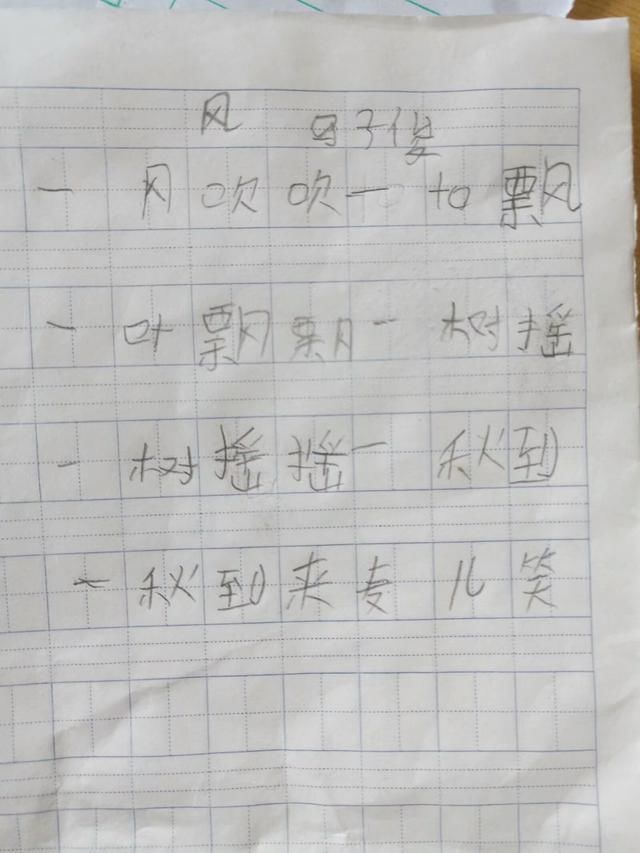 风 子俊
一 风吹吹一 叶飘
一 叶飘飘一 树摇
一 树摇摇一 秋到
一 秋到来 儿笑